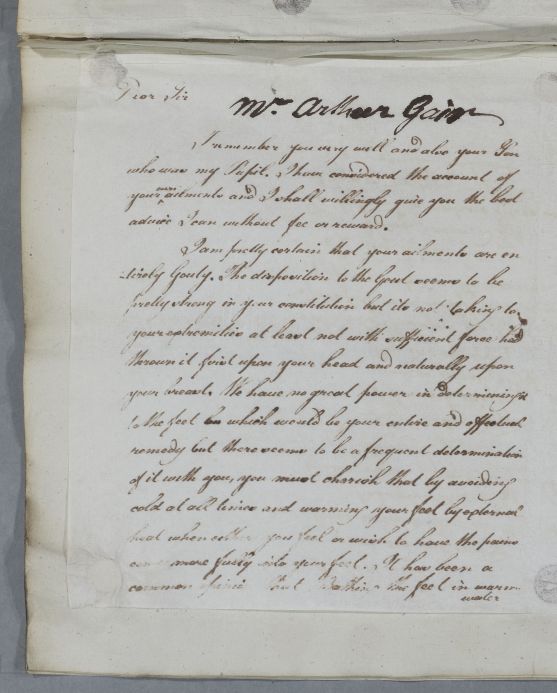 Dear Sir
Mr. Arthur Gair
I remember you very well and also your Son
who was my Pupil. I have considered the account of
your ailments and I shall willingly give you the best
advice I can without fee or reward.
I am pretty certain that your ailments are en
tirely Gouty. The disposition to the Gout seems to be
pretty strong in your constitution but its not taking to
your extremities at least not with sufficient force had
thrown it first upon your head and naturally upon
your breast. We have no great power in determining it
to the feet which would be your entire and effectual
remedy but there seems to be a frequent determination
of it with you, you must cherish that by avoiding
cold at all times and warming your feet by external
heat when either you feel or wish to have the pains
come more fully into your feet. It has been a
common that Bathing the feet in warm
water